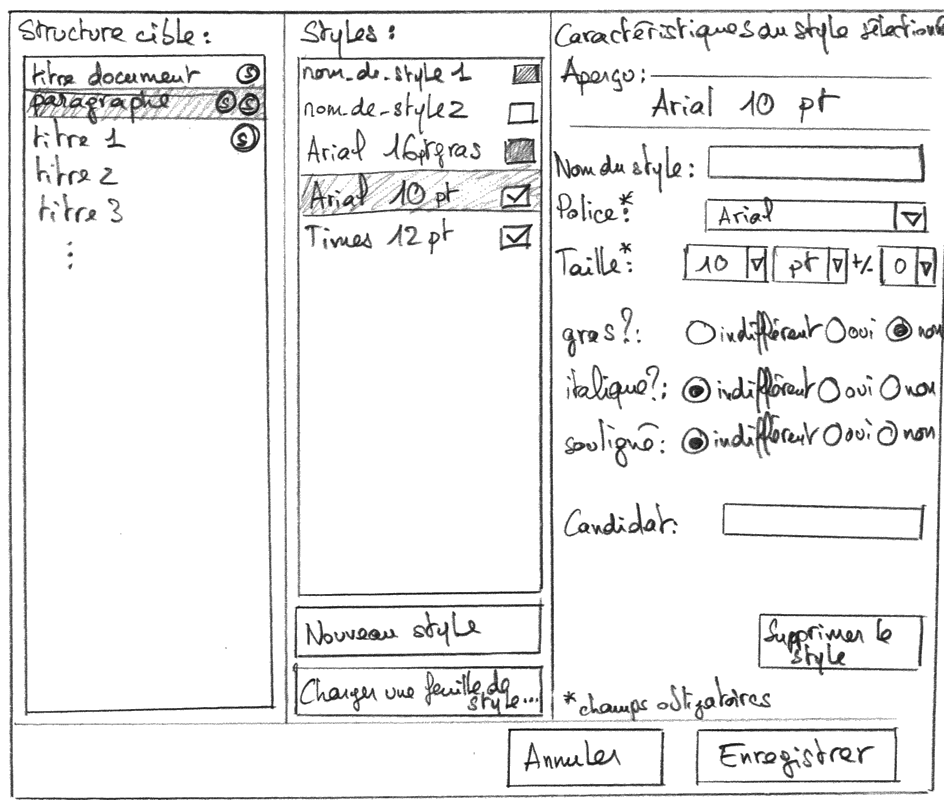 Structure cible :
titre document Ⓢ
paragraphe Ⓢ Ⓢ
titre 1 Ⓢ
titre 2
titre 3
⋮
Styles :
nom_de_style 1
nom_de_style 2
Arial 16pt gras
Arial 10 pt
Times 12 pt
Nouveau style
Charger une feuille de
style...
Caractéristiques du style sélectionné
Aperçu :
Arial 10 pt
Nom du style :
Police* :
Arial
Taille* :
10 pt +/- 0
gras ? : indifférent oui non
italique ? : indifférent oui non
souligné : indifférent oui non
Candidat :
Supprimer le
style
* champs obligatoires
Annuler
Enregistrer